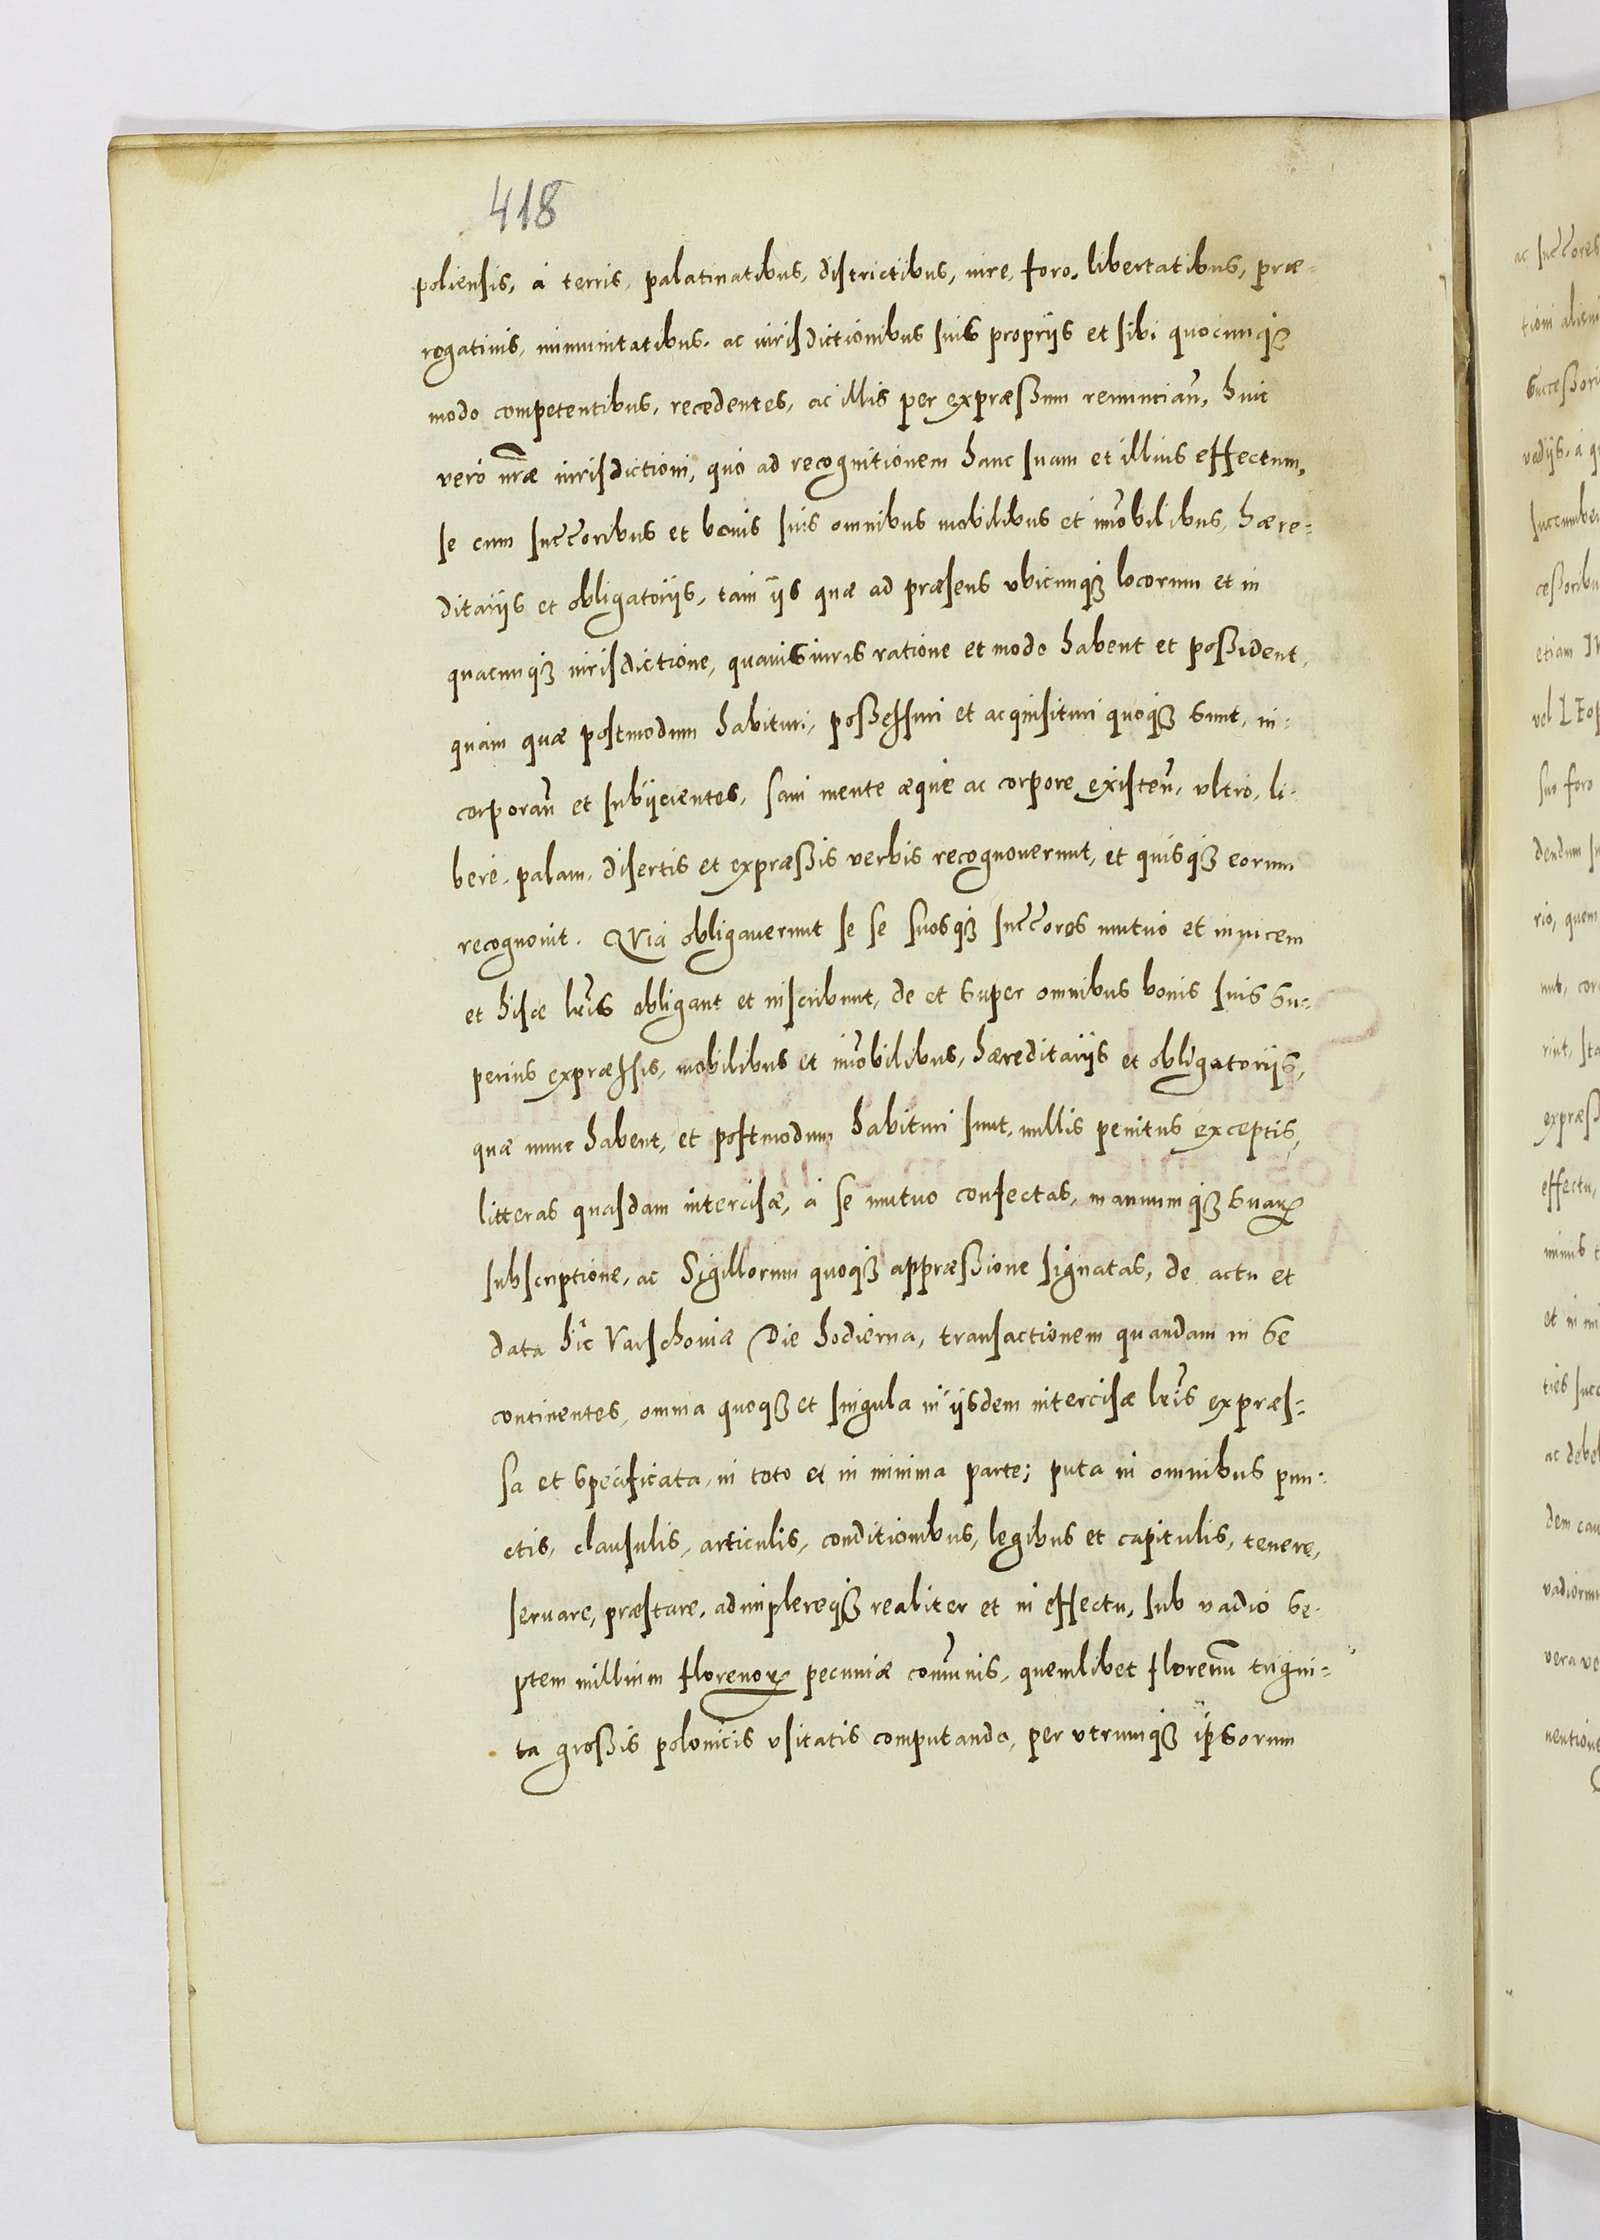 418
poliensis, à terris, palatinatibus, districtibus, iure, foro, libertatibus, præ-
rogatiuis, immunitatibus, ac iurisdictionibus suis propriis et sibi quocunqꝫ
modo competentibus, recedentes, ac illis per expræssum renuncian̄, huic
verò nr̄æ iurisdictioni, quò ad recognitionem hanc suam et illius effectum,
se cum succ̄oribus et bonis suis omnibus mobilibus et im̄obilibus, hære-
ditariis et obligatoriis, tam iis quæ ad præsens vbicunqꝫ locorum et in
quacunqꝫ iurisdictione, quauis iuris ratione et modo habent et possident,
quàm quæ postmodum habituri, possessuri et acquisituri quoqꝫ sunt, in-
corporan̄ et subiicientes, sani mente æquè ac corpore existen̄, vltrò, li-
berè, palam, disertis et expræssis verbis recognouerunt, et quisqꝫ eorum
recognouit. Quia obligauerunt se se suosqꝫ succ̄ores mutuò et inuicem
et hisce lr̄is obligant et inscribunt, de et super omnibus bonis suis su-
perius expræssis, mobilibus et im̄obilibus, hæreditariis et obligatoriis,
quæ nunc habent, et postmodum habituri sunt, nullis penitus exceptis,
litteras quasdam intercisæ, à se mutuo confectas, manuumqꝫ suarꝝ
subscriptione, ac Sigillorum quoqꝫ appræssione signatas, de actu et
data hîc Varschouiæ Die hodierna, transactionem quandam in se
continentes, omnia quoqꝫ et singula in iisdem intercisæ lr̄is expræs-
sa et specificata, in toto et in minima parte; puta in omnibus pun-
ctis, clausulis, articulis, conditionibus, legibus et capitulis, tenere,
seruare, præstare, adimplereqꝫ realiter et in effectu, sub vadio se-
ptem millium florenorꝝ pecuniæ com̄unis, quemlibet florenum trigin-
ta grossis polonicis vsitatis computando, per vtrumqꝫ ipsorum